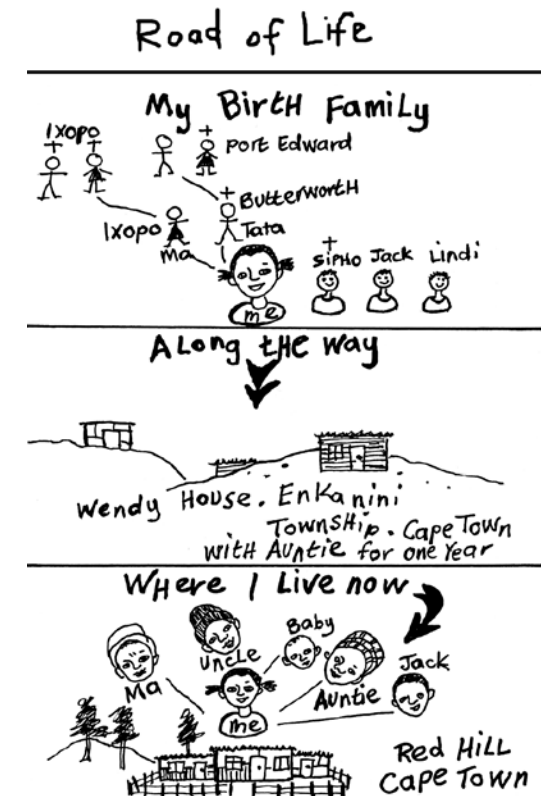 Road of Life
My Birth Family
Ixopo
Port Edward
Butterworth
Ixopo
Ma
Tata
Sipho Jack Lindi
me
Along the way
Wendy House. Enkanini
Township. Cape Town
with Auntie for one year
Where I Live now
Baby
Uncle
Jack
Ma
Auntie
me
Red Hill
Cape Town